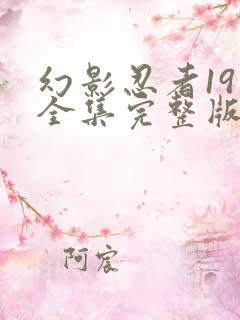 幻影忍者19
全集完整版
阿宸